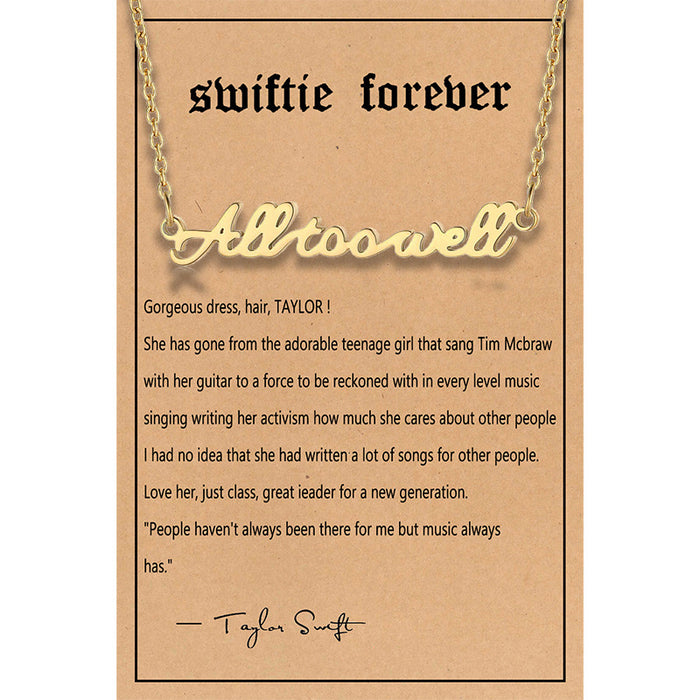 swiftie forever
Alltoowell
Gorgeous dress, hair, TAYLOR !
She has gone from the adorable teenage girl that sang Tim Mcbraw
with her guitar to a force to be reckoned with in every level music
singing writing her activism how much she cares about other people
I had no idea that she had written a lot of songs for other people.
Love her, just class, great ieader for a new generation.
"People haven't always been there for me but music always
has."
— Taylor Swift